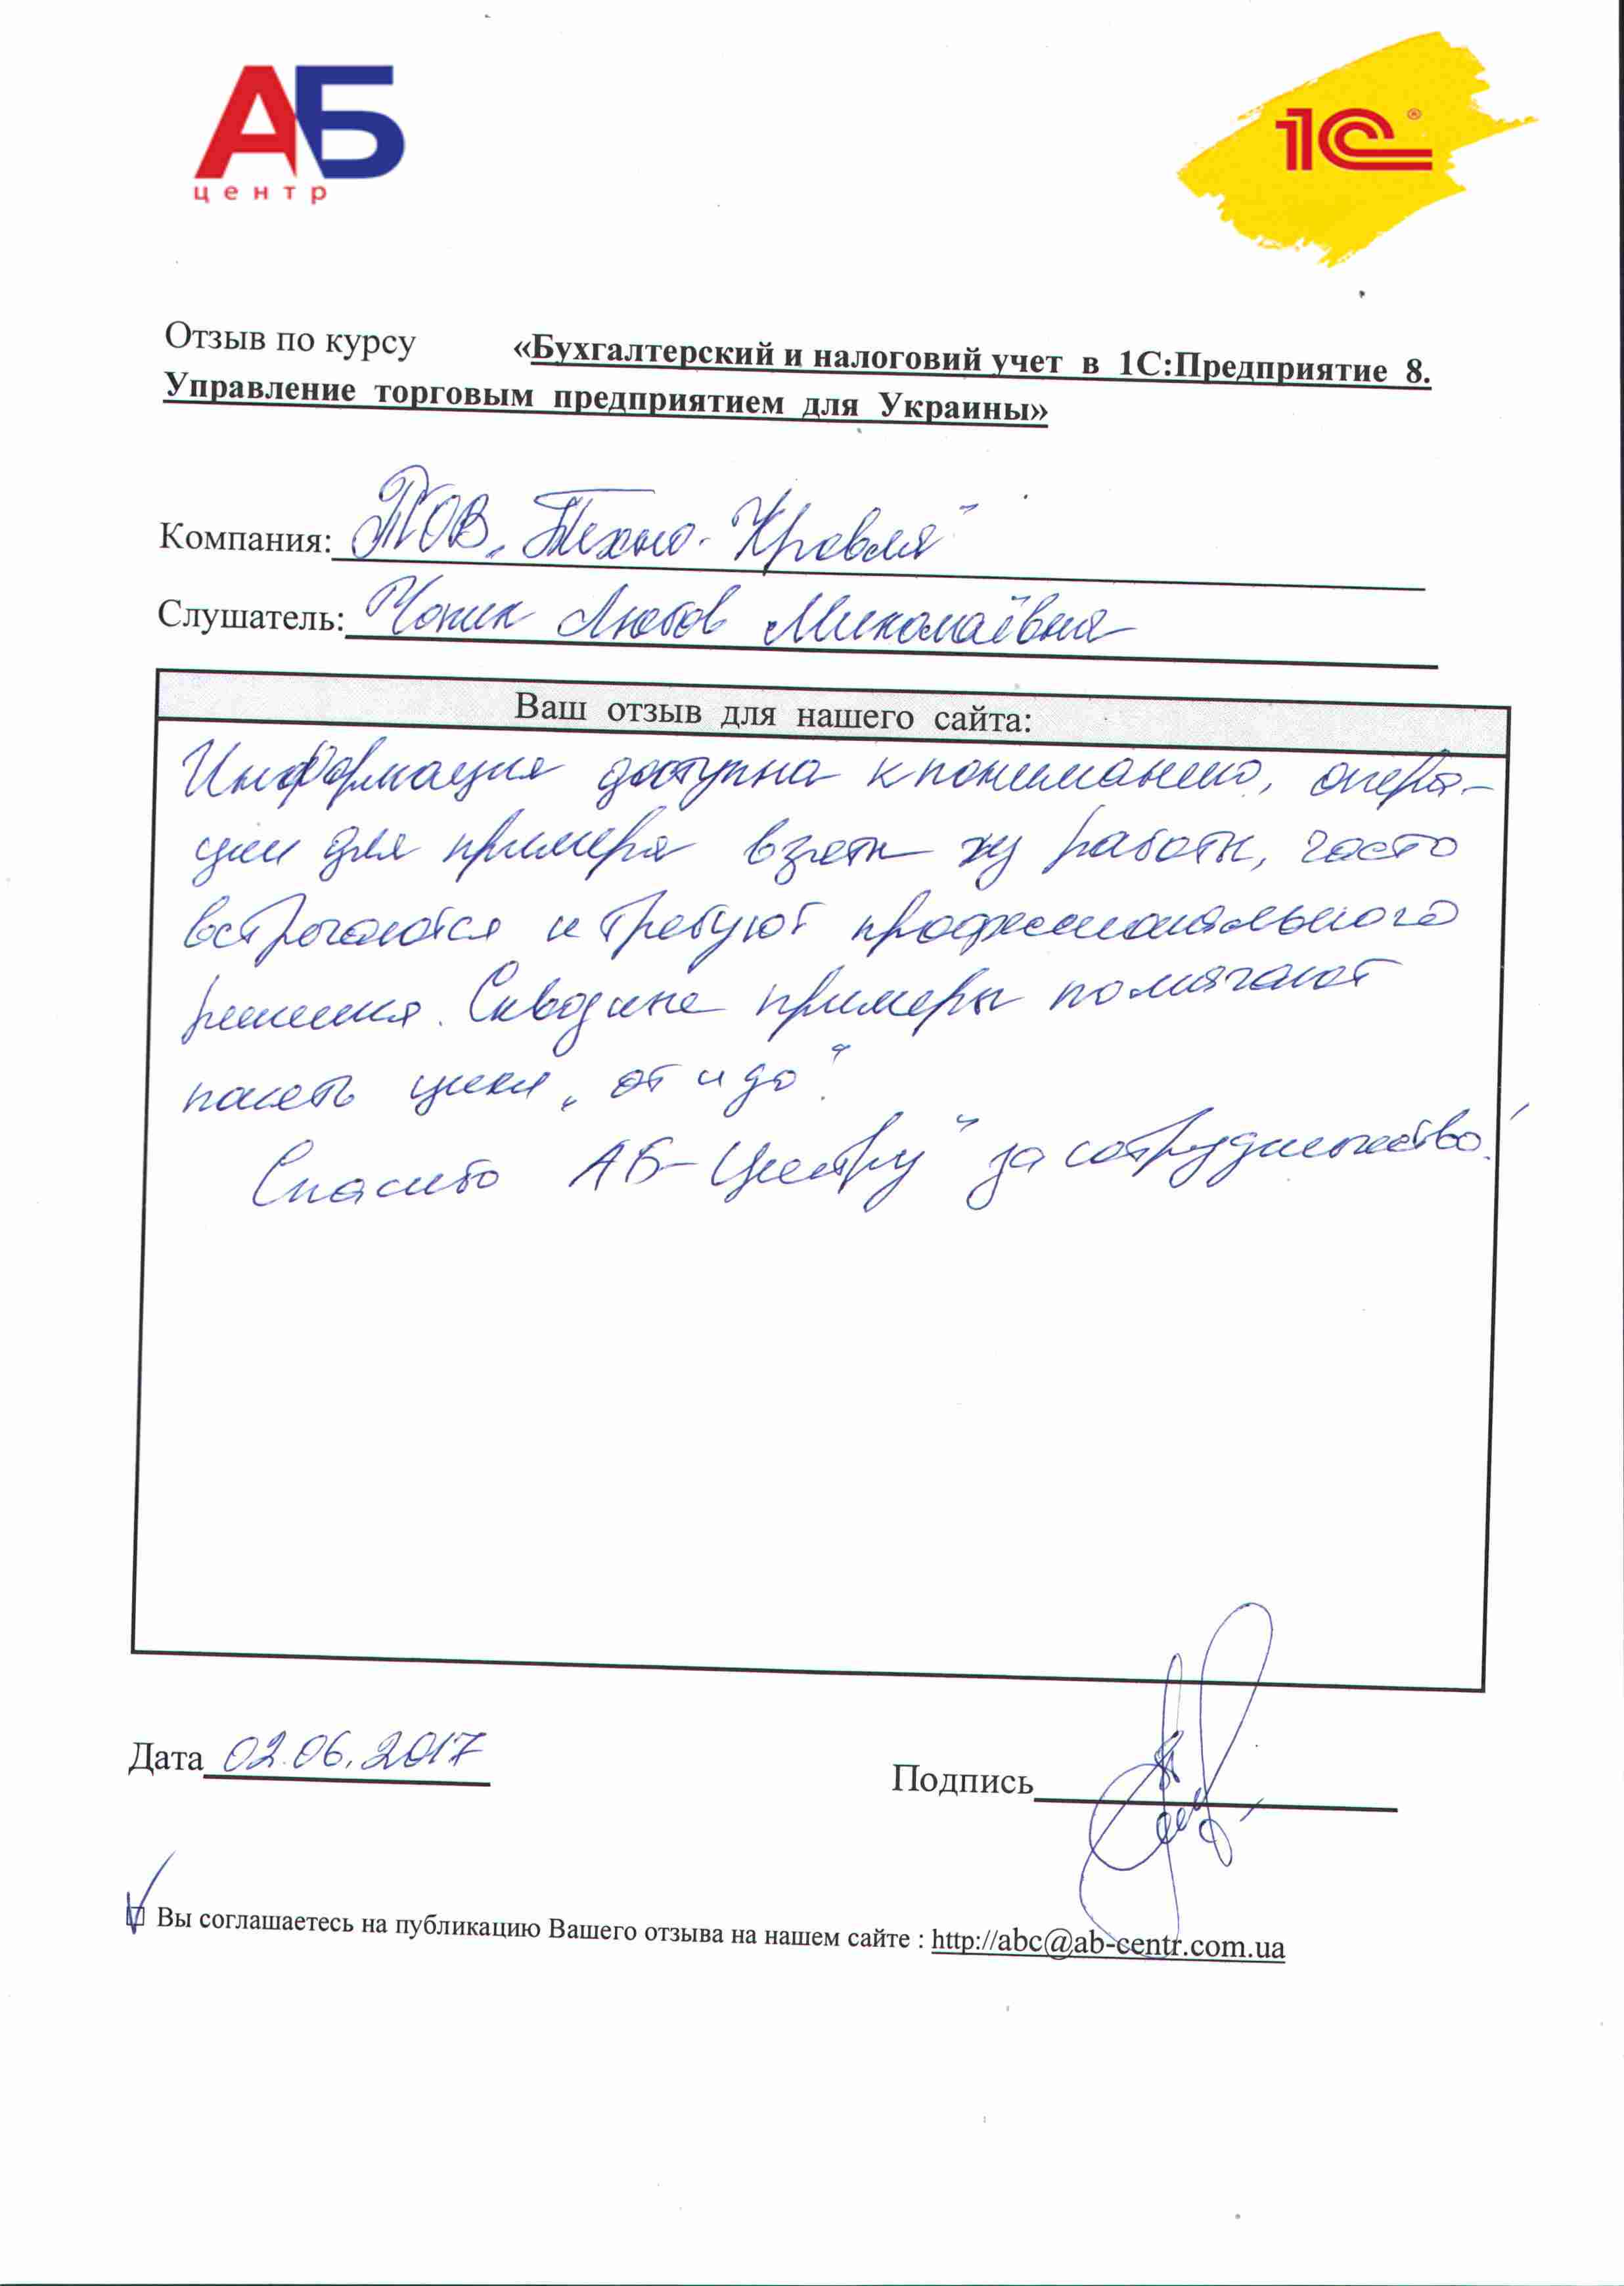 АБ
центр
1С®
Отзыв по курсу «Бухгалтерский и налоговий учет в 1С:Предприятие 8.
Управление торговым предприятием для Украины»
Компания: ТОВ „Техно-Кровля"
Слушатель: Чопик Любов Миколаївна
Ваш отзыв для нашего сайта:
Информация доступна к пониманию, опера-
ции для примера взяты из работы, часто
встречаются и требуют профессионального
решения. Сквозные примеры помагают
понять цикл „от и до".
Спасибо АБ-Центру" за сотрудничество!
Дата 02.06.2017
Подпись
Вы соглашаетесь на публикацию Вашего отзыва на нашем сайте : http://abc@ab-centr.com.ua